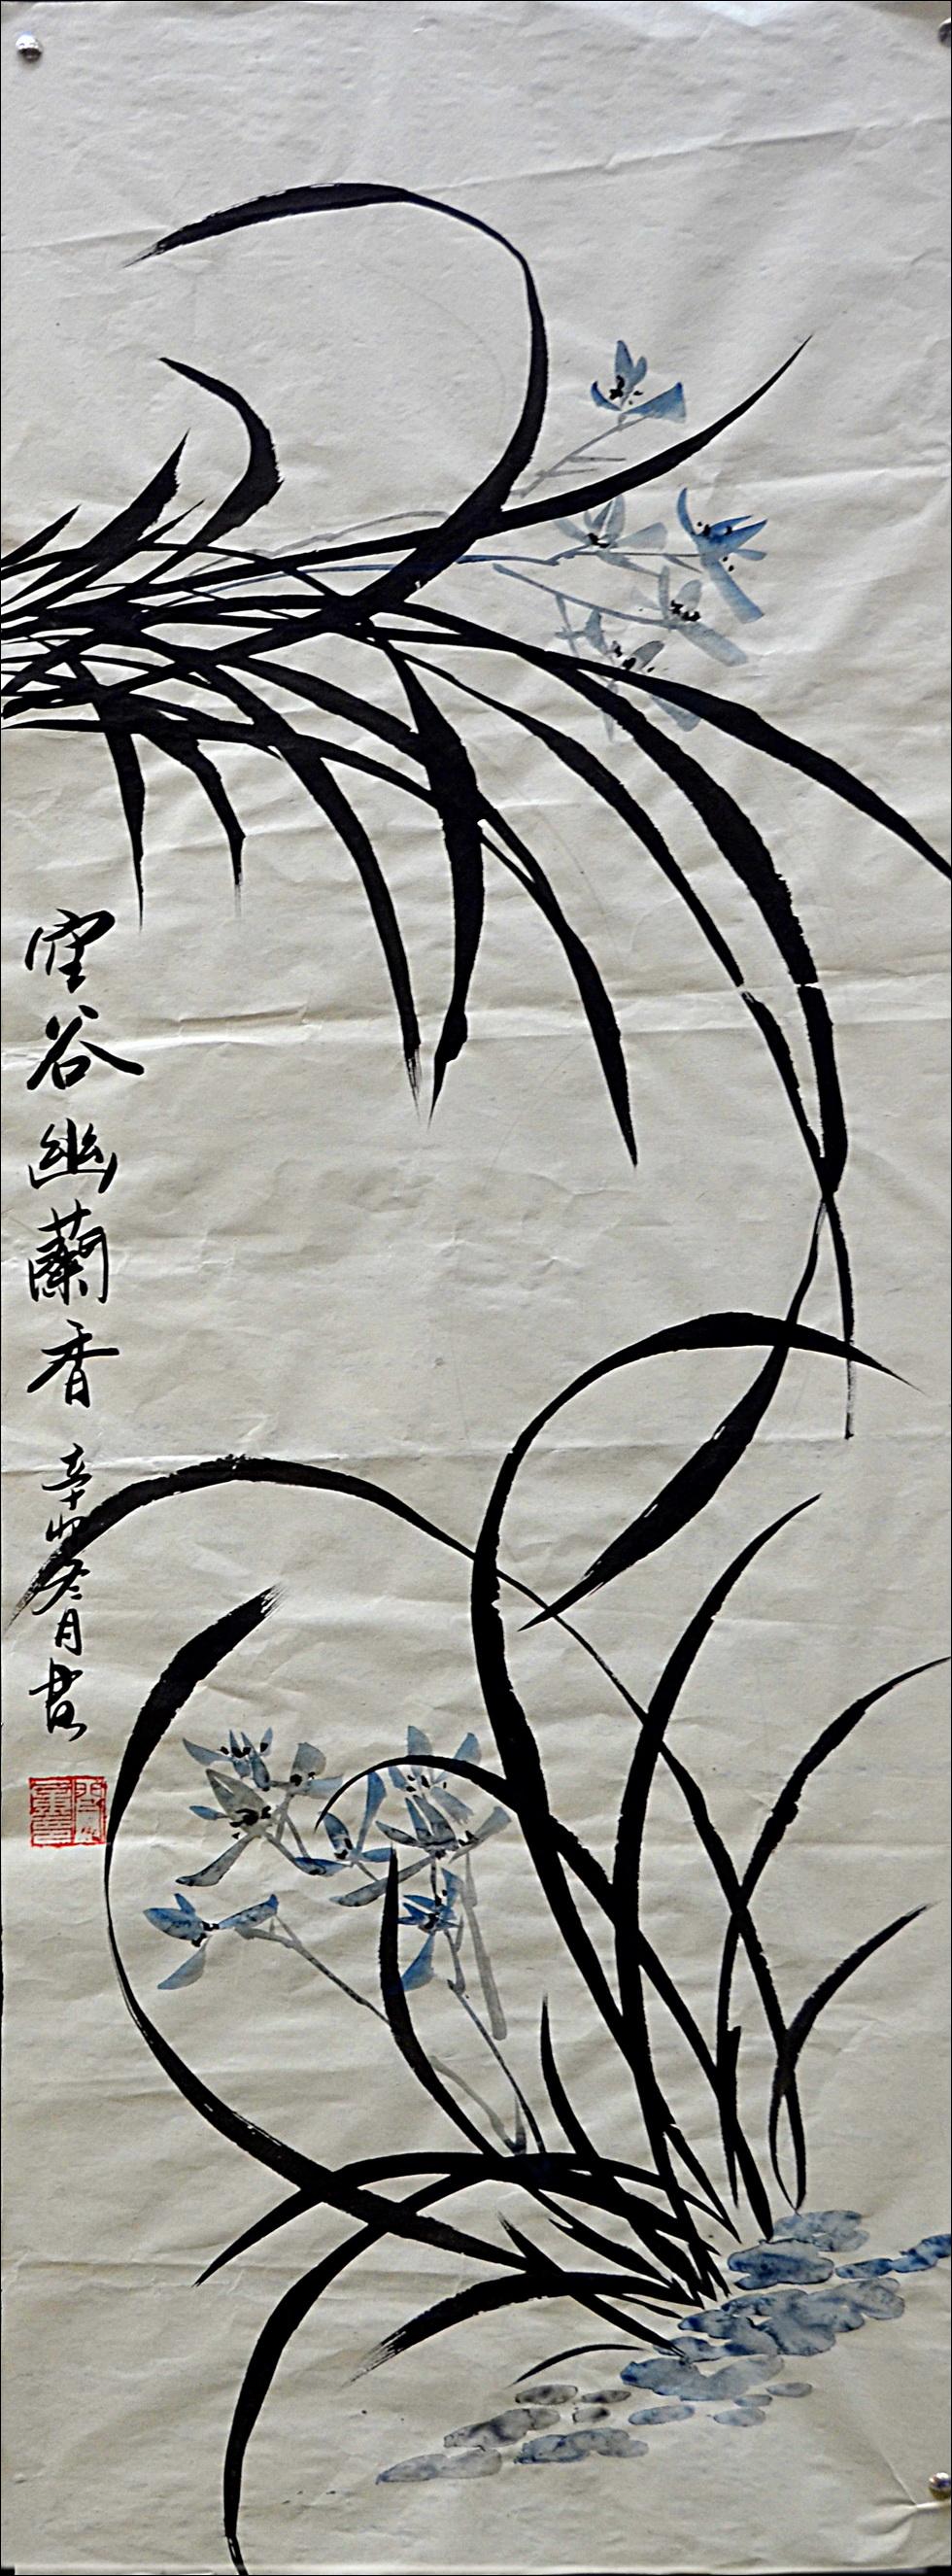 空谷幽蘭香 辛卯冬月書